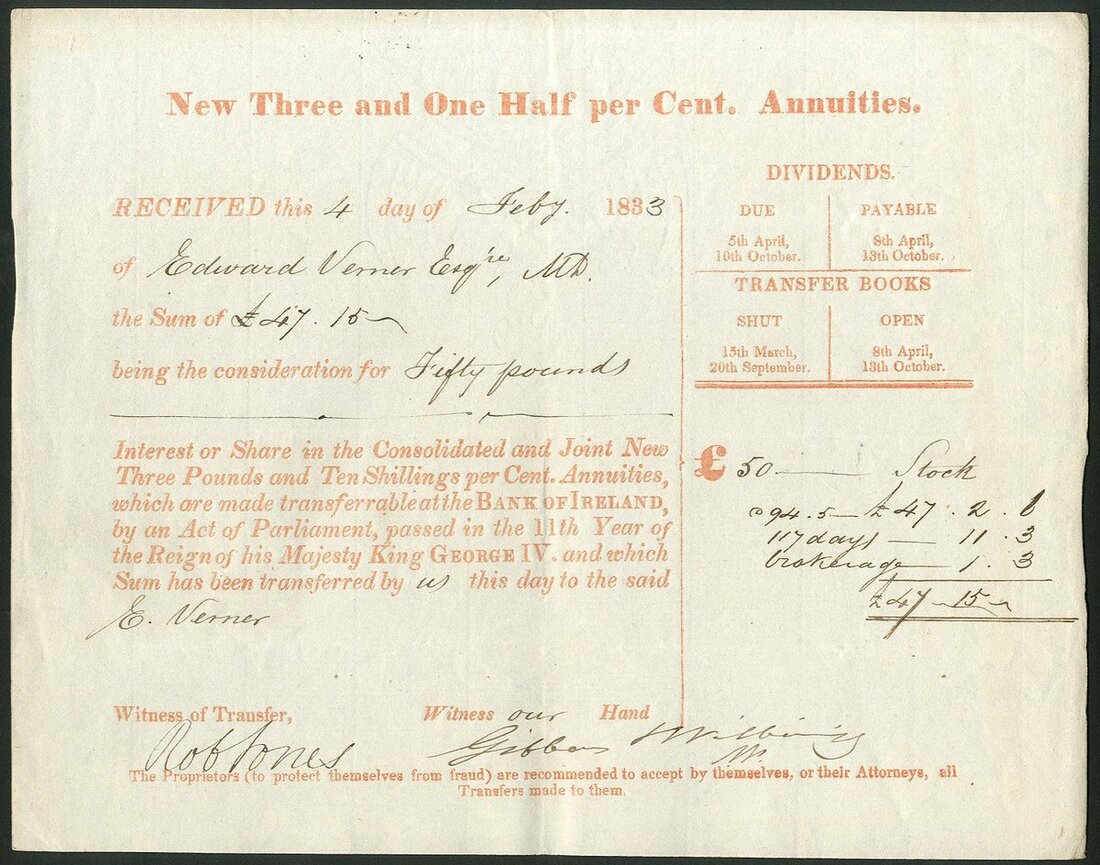 New Three and One Half per Cent. Annuities.
RECEIVED this 4 day of Feby. 1833
of Edward Verner Esqre, MD.
the Sum of £47.15
being the consideration for Fifty pounds
Interest or Share in the Consolidated and Joint New
Three Pounds and Ten Shillings per Cent. Annuities,
which are made transferrable at the BANK OF IRELAND,
by an Act of Parliament, passed in the 11th Year of
the Reign of his Majesty King GEORGE IV. and which
Sum has been transferred by us this day to the said
E. Verner
DIVIDENDS.
DUE PAYABLE
5th April, 8th April,
10th October. 13th October.
TRANSFER BOOKS
SHUT OPEN
15th March, 8th April,
20th September. 13th October.
£ 50 — Stock
@ 94.5 — £47.2.6
117 days — 11.3
brokerage — 1.3
£47 — 15
Witness of Transfer, Witness our Hand
Rob Jones Gibbons
The Proprietors (to protect themselves from fraud) are recommended to accept by themselves, or their Attorneys, all
Transfers made to them.